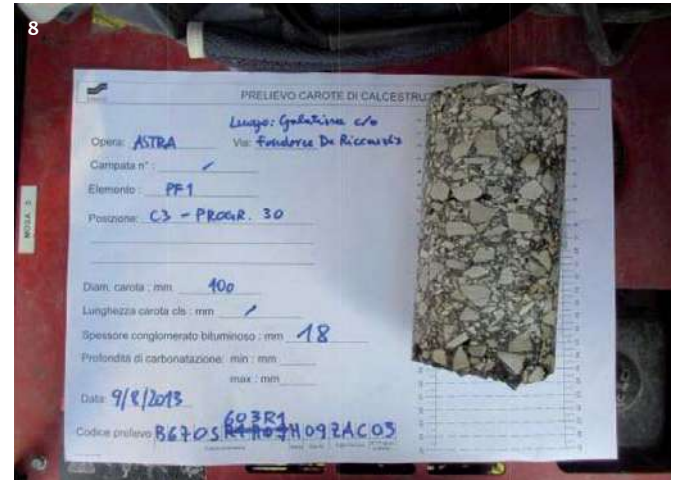 8
PRELIEVO CAROTE DI CALCESTRU
Luogo: Galatina c/o
Opera: ASTRA Via: Fonderie De Riccardis
Campata n° : /
Elemento : PF1
Posizione: C3 - PROGR. 30
Diam. carota : mm 100
Lunghezza carota cls : mm /
Spessore conglomerato bituminoso : mm 18
Profondità di carbonatazione: min : mm
max : mm
Data: 9/8/2013
603R1
Codice prelievo B670S H09ZAC03
MOSA - S